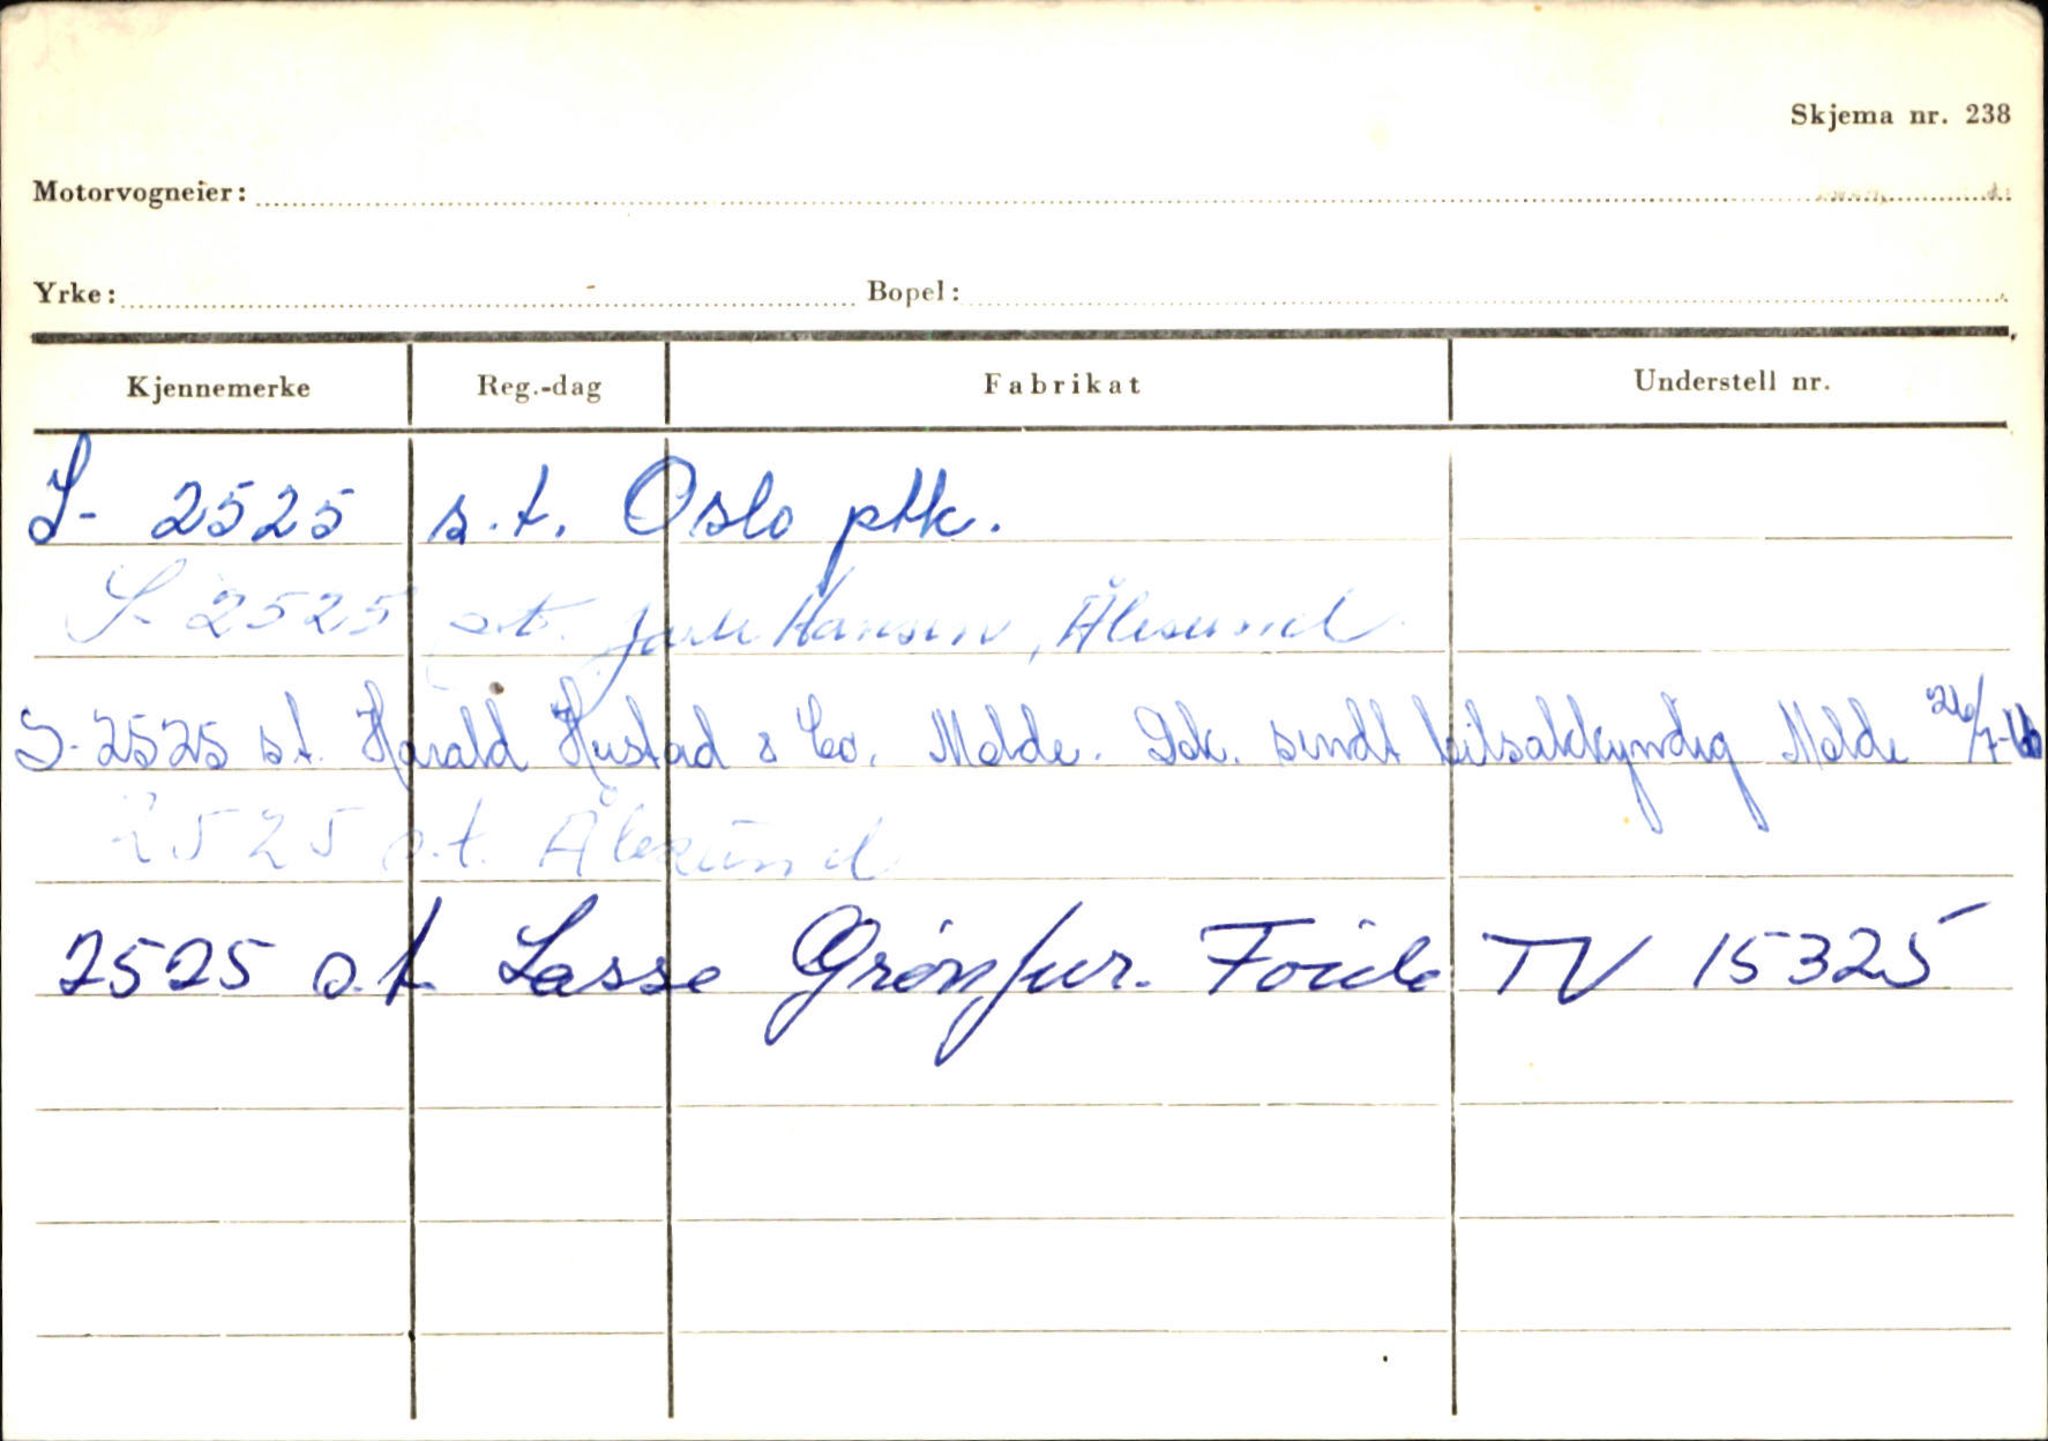 Skjema nr. 238
Motorvogneier:
Yrke: Bopel:
Kjennemerke Reg.-dag Fabrikat Understell nr.
S- 2525 s.t. Oslo ptk.
S- 2525 s.t. Hansen, Ålesund
S-2525 s.t. Harald Hustad & Co. Molde. Dok. sendt bilsakkyndig Molde 26/7-66
2525 s.t. Ålesund
2525 s.t. Lasse Grönfur. Förde TV 15325